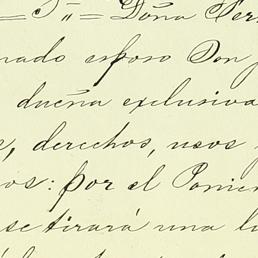 = S," = Doña Per
nado esposo Don
dueña exclusiva
s, derechos, usos
os: por el Ponien
se tirará una lí